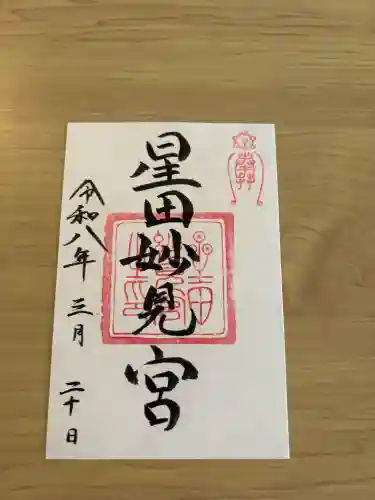 奉拝
星田妙見宮
令和八年三月二十日